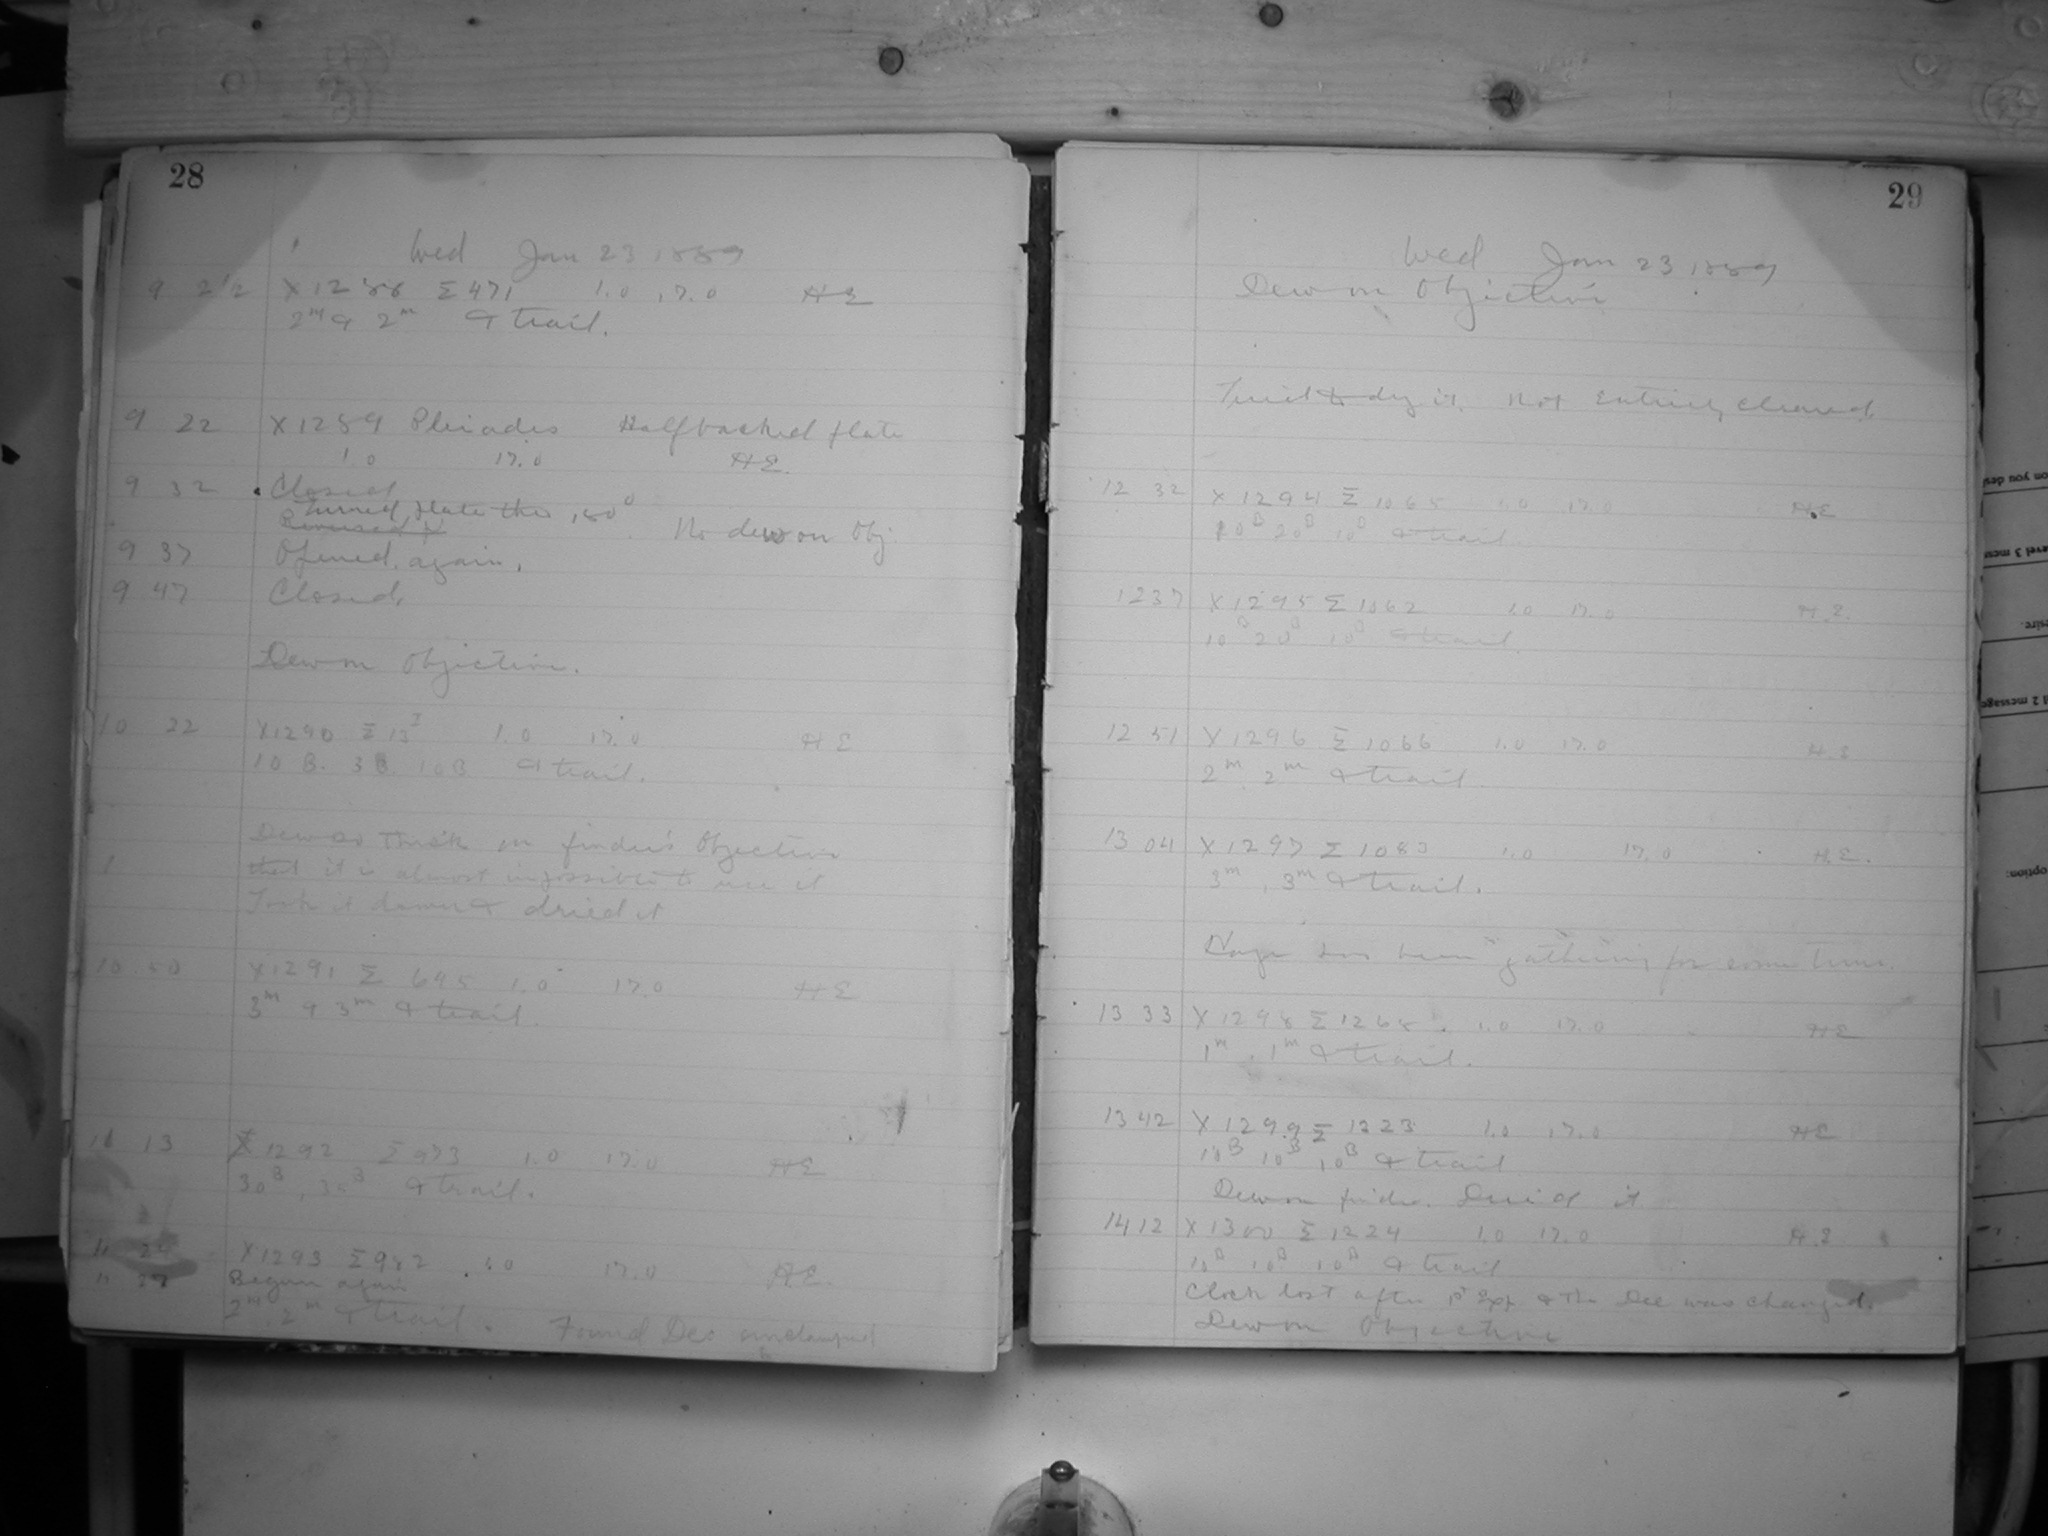 28
Wed Jan 23 1889
9 2½ X1288 Σ 471 1.0 17.0 HE
2m & 2m & trail.
9 22 X1289 Pleiades Half backed plate
1.0 17.0 HE.
9 32 Closed
Turned plate thro 180°
Reversed it No dew on Obj.
9 37 Opened again.
9 47 Closed.
Dew on Objective.
10 22 X1290 Σ 1.0 17.0 HE
10 B. 3 B. 10 B & trail.
Dew so thick on finder's Objective
that it is almost impossible to use it
Took it down & dried it
10 50 X1291 Σ 645 1.0 17.0 HE
3m & 3m & trail.
11 13 X1292 Σ 973 1.0 17.0 HE
30B, 30B & trail.
X1293 Σ 982 1.0 17.0 HE.
11 27 Begun again
2m. 2m & trail. Found Dec unclamped
29
Wed Jan 23 1889
Dew on Objective
Tried to dry it. Not Entirely cleared.
12 32 X1294 Σ 1065 1.0 17.0 HE
20B 10B & trail.
12 37 X1295 Σ 1062 1.0 17.0 H.E.
10B 20B 10B & trail.
12 51 X1296 Σ 1066 1.0 17.0 H.E
2m 2m & trail
13 04 X1297 Σ 1083 1.0 17.0 H.E.
3m, 3m & trail.
has been "gathering" for some time.
13 33 X1298 Σ 1268 1.0 17.0 HE
1m, 1m & trail.
13 42 X1299 Σ 1223 1.0 17.0 HE
10B 10B 10B & trail
Dew on finder. Dried it
14 12 X1300 Σ 1224 1.0 17.0 H.E
10B 10B 10B & trail
Clock lost after 1st Exp & the Dec was changed.
Dew on Objective